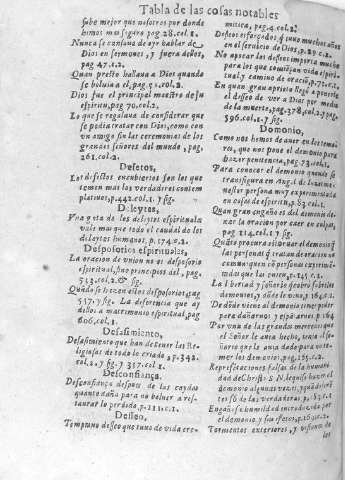 Tabla de las cosas notables
sube mejor que nosotros por donde
himos mas seguro pag 28.col.1.
Nunca se cansaua de ayr hablar de
Dios en sermones, y fuera dellos,
pag 47.1.2.
Quan presto hallaua a Dios quando
se boluia el, pag.52.col.2.
Dios fue el principal maestro de su
espiritu, pag 70.col.2.
Lo que se regalaua de considerar que
se podia tratar con Dios, como con
vn amigo sin las ceremonias de los
grandes señores del mundo, pag.
261.col.2.
Defetos,
Los defectos encubiertos son los que
temen mas los verdaderos contem
platiuos, p.442.col.1. y sig.
Deleytes,
Vna gota de los deleytes espirituales
vale mas que todo el caudal de los
deleytes humanos, p.174.c.2.
Desposorios espirituales,
La oracion de vnion no es desposorio
espiritual, sino principios del, pag.
523.col.2. & sig.
Quãdo se hazen estos desposorios, pag
557. y sig. La diferencia que ay
dellos a matrimonio espiritual, pag
606.col.1.
Desasimiento,
Desasimiento que han de tener las Re-
ligiosas de todo lo criado, p.342.
col.2. y sig. y 357.col.1.
Desconfiança,
Desconfiança despues de las caydas
quanto daña para no boluer a res-
taurar lo perdido, p.211.c.1.
Desseo,
Temprano desseo que tuuo de vida ere-
mitica, pag 4.col.2.
Desseos esforçados q̃ tuuo muchos años
en el seruicio de Dios, p.29.c.2.
No apocar los desseos importa mucho
para los que comiençan vida espiri-
tual, y camino de oracio, p.71.c.2.
En quan gran aprieto llegò a ponerla
el desseo de ver a Dios por medio
de la muerte, pag.378.col.2. y pag.
396.col.1. y sig.
Demonio,
Como nos hemos de auer en los temo-
res, que nos pone el demonio para
hazer penitencia, pag.73.col.1.
Para conocer el demonio quando se
transfigura en Angel de luz es me-
nester persona muy experimentada
en cosas de espiritu, p.83.col.1.
Quan gran engaño es del demonio de-
xar la oracion por caer en culpas,
pag 214.col.1. y sig
Quãto procura estoruar el demonio q̃
las personas q̃ tratan de oracion se
comuniquen cõ personas experimẽ-
tadas que las guien, p.145.c.1.
La libertad y señorio q̃ cobrò sobre los
demonios, y donde les vino, p.164.c.2.
De dõde tiene el demonio tener poder
para dañarnos y espãtarnos. p.164
Por vna de las grandes mercedes que
el Señor le auia hecho, tenia el se-
ñorio que le auia dado para no te-
mer los demonios, pag.165.c.2.
Representaciones falsas de la humani-
dad de Christo S.N. le quiso hazer el
demonio algunas vezes, y quã distin-
tas sõ de las verdaderas, p.182.c.1
Engaños e humildad introduzida por
el demonio, y sus efetos, p.196.c.2.
Tormentos exteriores, y visiones de
los